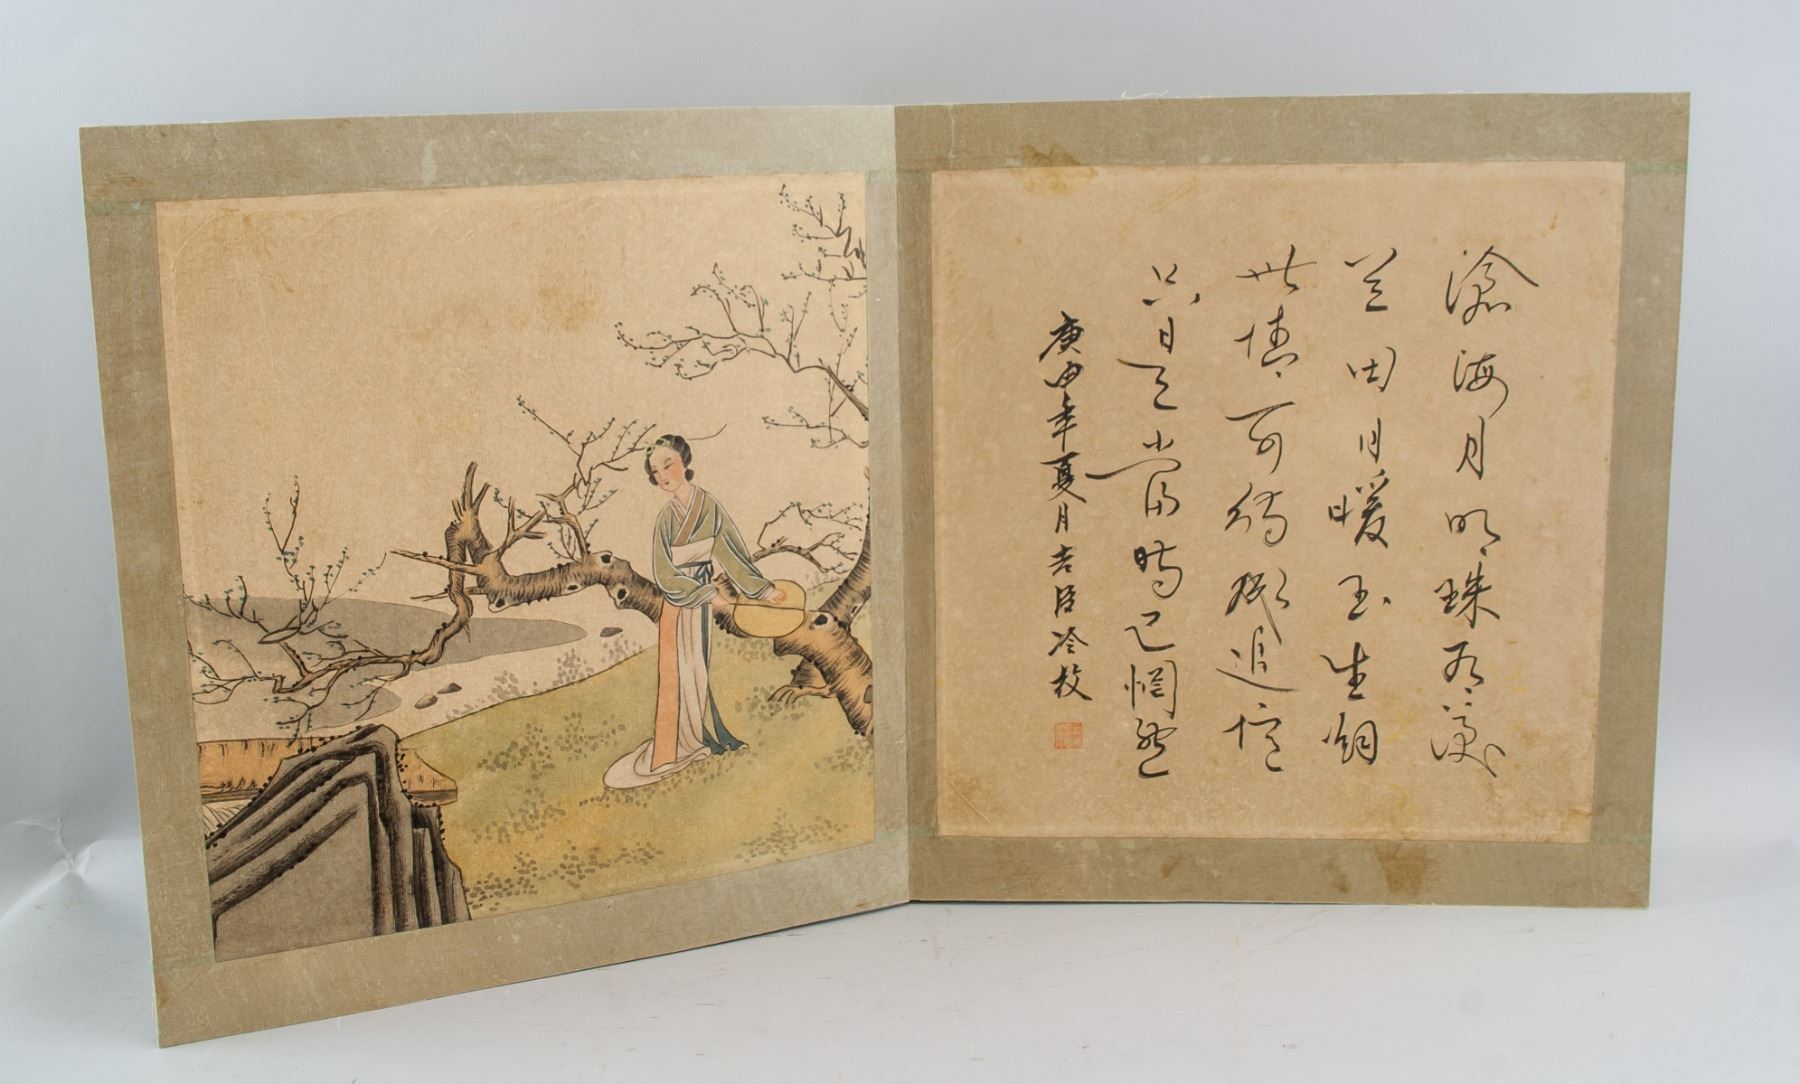 滄海月明珠有淚
兰田日暖玉生烟
此情可待成追憶
只是當時已惘然
庚申年夏月吉臣冷枚